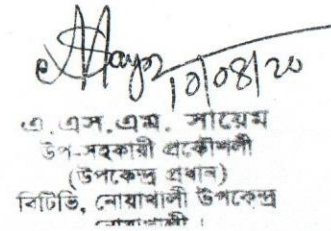 10/08/20
এ.এস.এম. সায়েম
উপ-সহকারী প্রকৌশলী
(উপকেন্দ্র প্রধান)
বিটিভি, নোয়াখালী উপকেন্দ্র
নোয়াখালী।